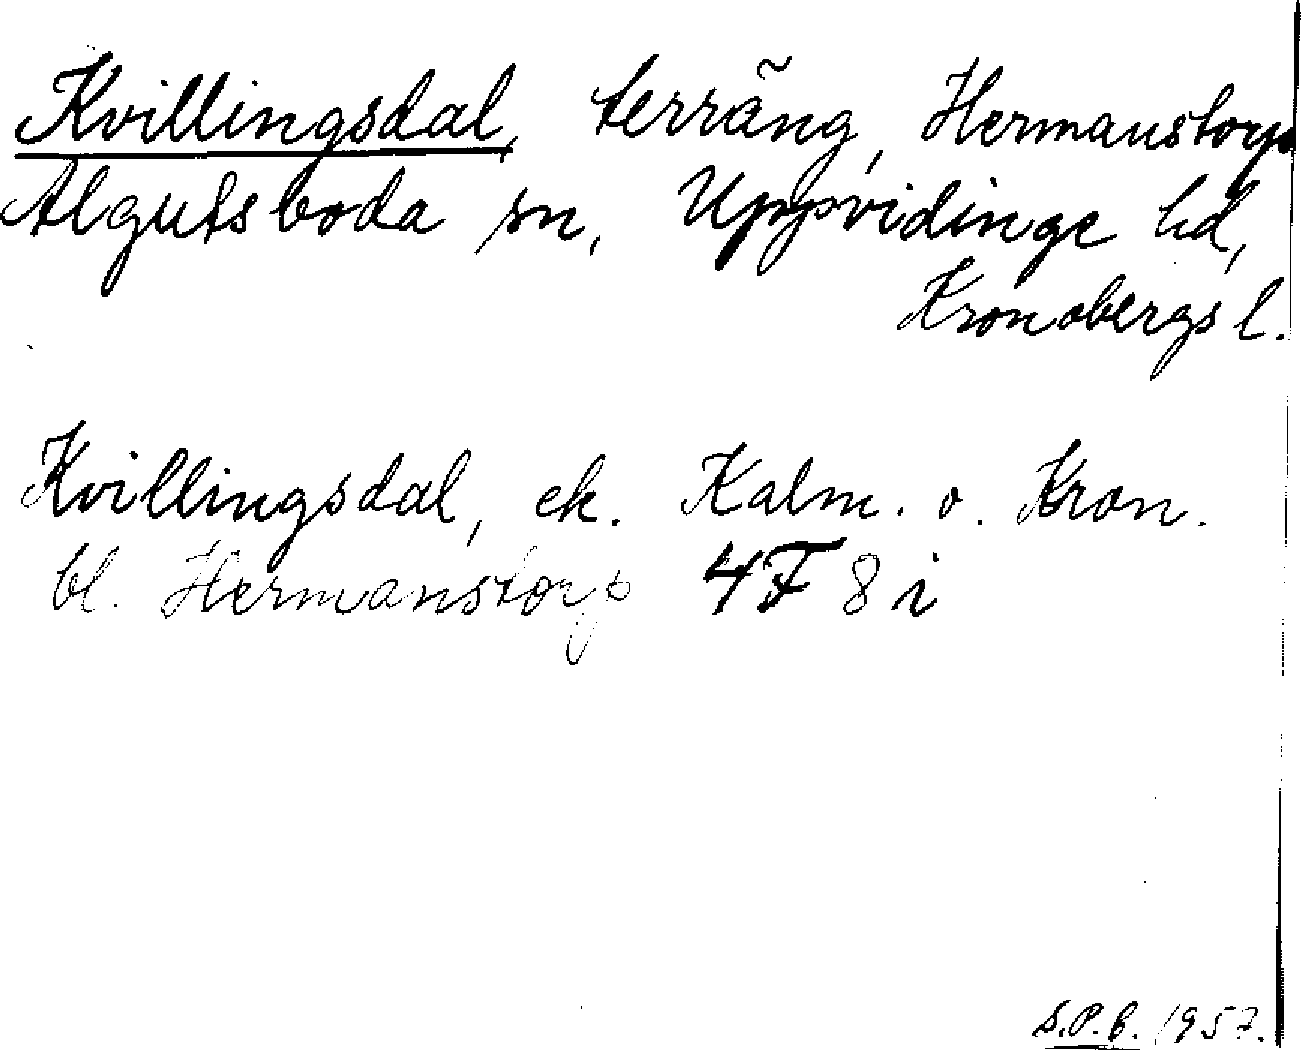 Kvillingsdal, terräng, Hermanstorp
Algutsboda sn, Uppvidinge hd,
Kronobergs l.
Kvillingsdal, ek. Kalm. o. Kron.
bl. Hermanstorp 4F 8 i
S.P.B. 1957.